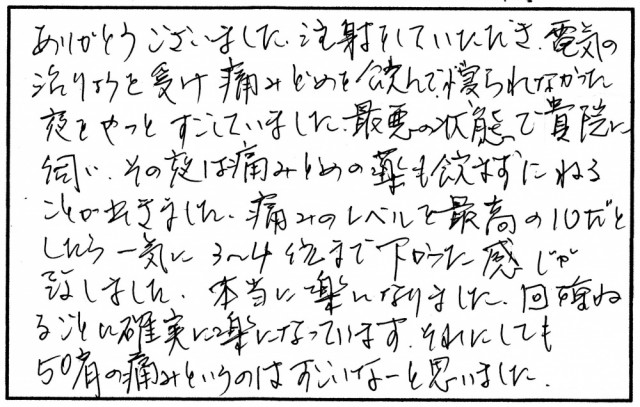 ありがとうございました。注射をしていただき、電気の
治りょうを受け痛みどめを飲んで、寝られなかった
夜をやっとすごしていました。最悪の状態で貴院に
伺い、その夜は痛みどめの薬も飲まずにねる
ことが出きました。痛みのレベルを最高の10だと
したら一気に3〜4位まで下がった感じが
致しました。本当に楽になりました。回復ね
るごとに確実に楽になっています。それにしても
50肩の痛みというのはすごいなーと思いました。